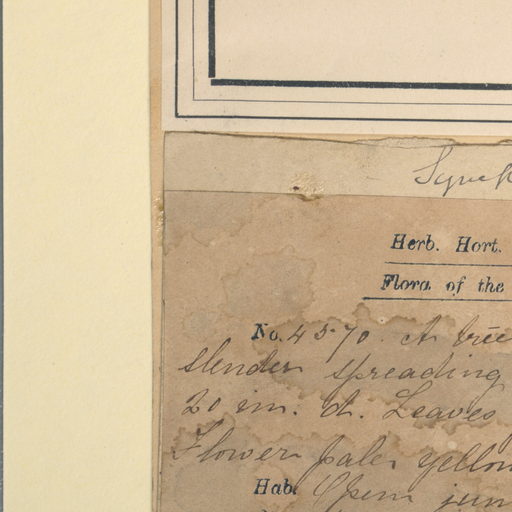 Herb. Hort.
Flora of the
No. 4570. A tree
slender spreading
20 in. d. Leaves
Flower pale yellow
Hab. Open jun